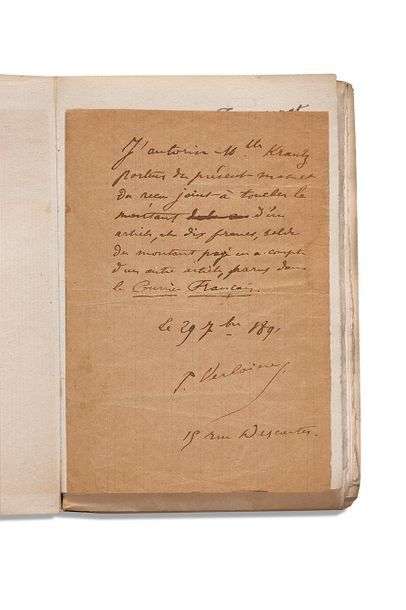 J'autorise Mlle Krantz
porteur du présent et
du reçu joint à toucher le
montant d'un
article, de dix francs, solde
du montant payé en acompte
d'un autre article, paru dans
le Courrier Français.
le 29 7bre 1891
P. Verlaine
15 rue Descartes.